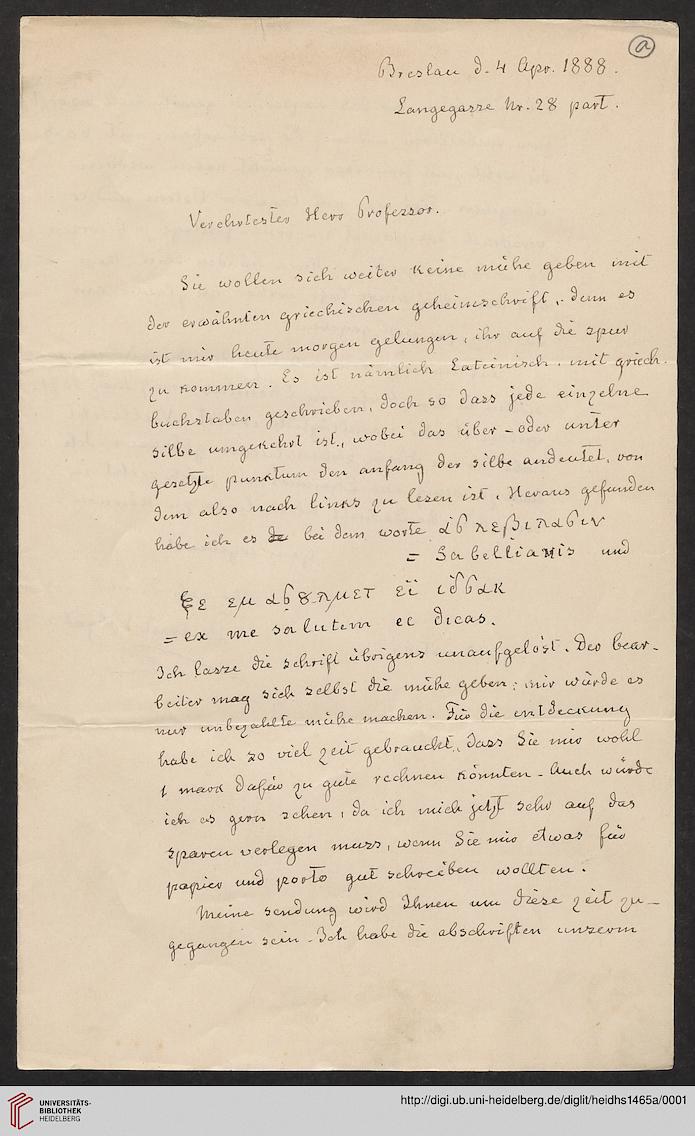 a
Breslau d. 4 Apr. 1888.
Langegasse Nr. 28 part.
Verehrtester Herr Professor.
Sie wollen sich weiter keine mühe geben mit
der erwähnten griechischen geheimschrift, denn es
ist mir heute morgen gelungen, ihr auf die spur
zu kommen. Es ist nämlich Lateinisch, mit griech.
buchstaben geschrieben, doch so dass jede einzelne
silbe umgekehrt ist, wobei das über- oder unter
gesetzte punktum den anfang der silbe andeutet, von
dem also nach links zu lesen ist. Heraus gefunden
habe ich es bei dem worte
= Sabellianis und
= ex me salutem ei dicas.
Ich lasse die schrift übrigens unaufgelöst. Der bear-
beiter mag sich selbst die mühe geben; mir würde es
nur unbezahlte mühe machen. Für die entdeckung
habe ich so viel zeit gebraucht, dass Sie mir wohl
1 mark dafür zu gute rechnen könnten. Auch würde
ich es gern sehen, da ich mich jetzt sehr auf das
sparen verlegen muss, wenn Sie mir etwas für
papier und porto gut schreiben wollten.
Meine sendung wird Ihnen um diese zeit zu-
gegangen sein. Ich habe die abschriften unserm
UNIVERSITÄTS-
BIBLIOTHEK
HEIDELBERG
http://digi.ub.uni-heidelberg.de/diglit/heidhs1465a/0001